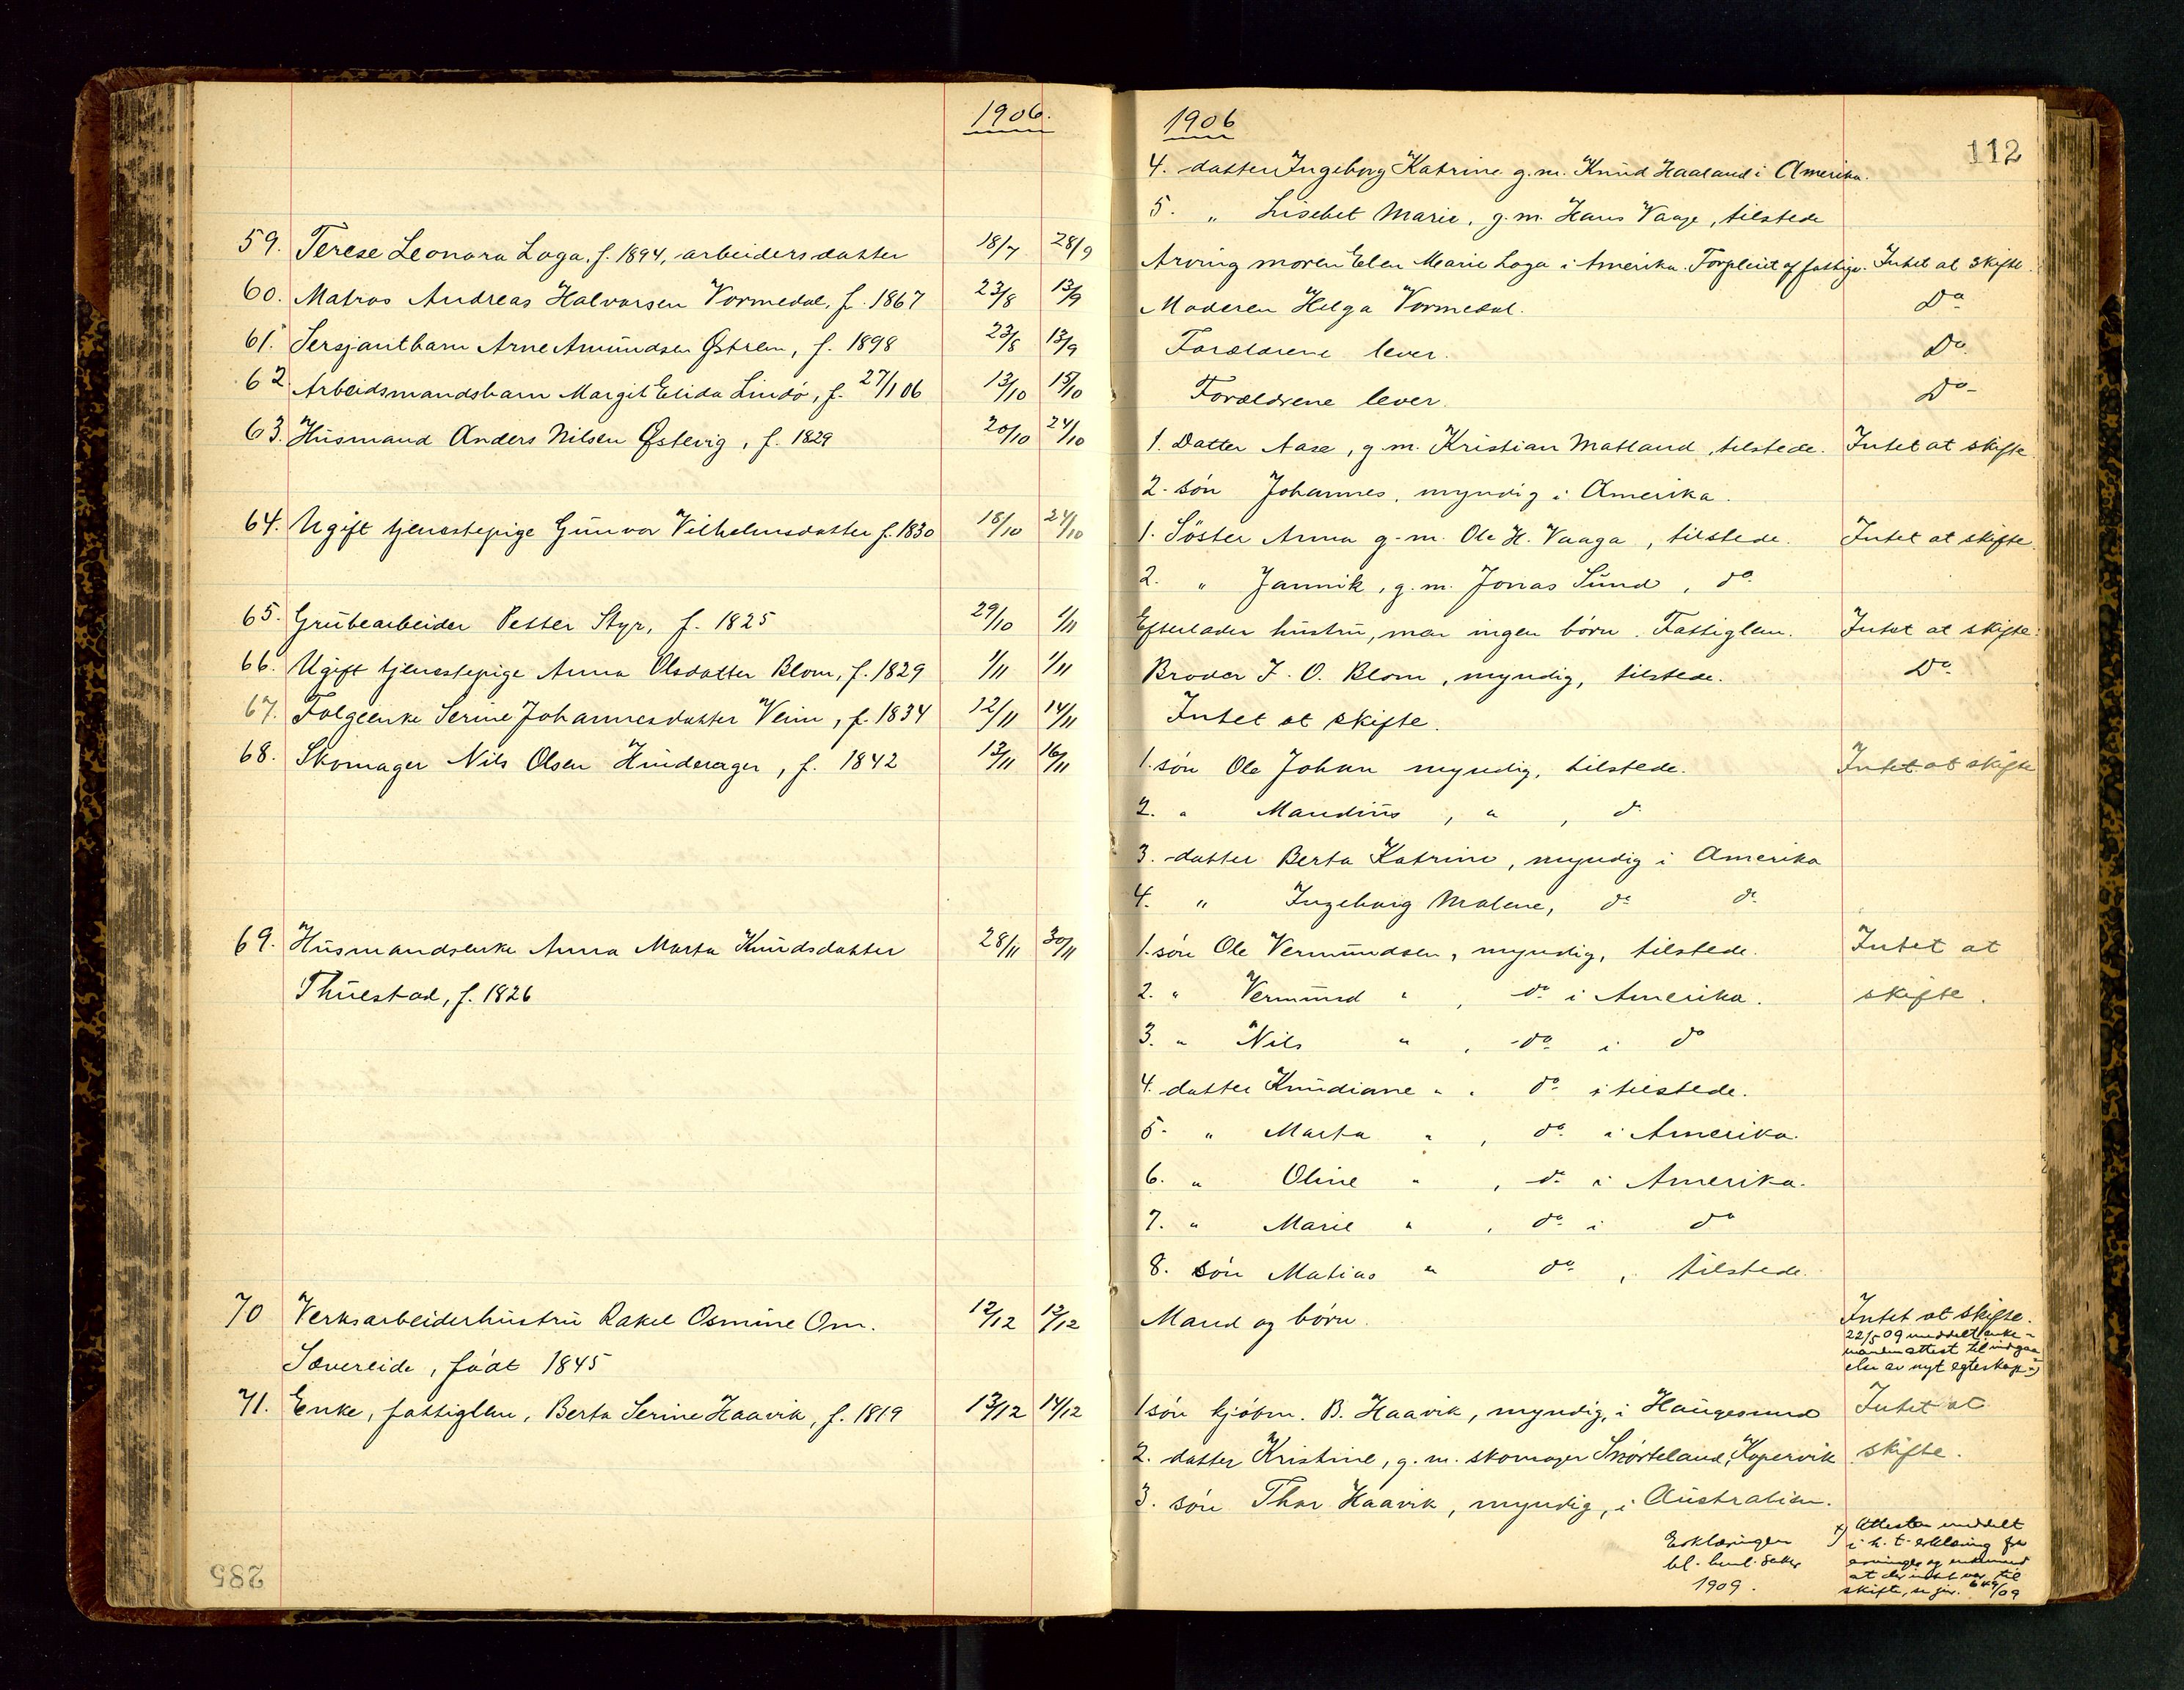 1906.
59. Terese Leonora Loga, f. 1894, arbeidersdatter 18/7 28/9
60. Matros Andreas Halvorsen Vormedal, f. 1867 23/8 13/9
61. Sersjantbarn Arne Amundsen Østrem, f. 1898 23/8 13/9
62 Arbeidsmandsbarn Margit Elida Lindö, f. 27/1 06 13/10 15/10
63. Husmand Anders Nilsen Østevig, f. 1829 20/10 24/10
64. Ugift tjenestepige Gunvor Vilhelmsdatter f. 1830 18/10 24/10
65. Grubearbeider Petter Styr, f. 1825 29/10 1/11
66. Ugift tjenestepige Anna Olsdatter Blom, f. 1829 1/11 1/11
67. Folgeenke Serine Johannesdatter Veim, f. 1834 12/11 14/11
68. Skomager Nils Olsen Hinderager, f. 1842 13/11 16/11
69. Husmandsenke Anna Marta Knudsdatter 28/11 30/11
Thuestad, f. 1826
70 Verksarbeiderhustru Rakel Osmine Om. 12/12 12/12
Sævereide, född 1845
71. Enke, fattiglem, Berta Serine Haavik, f. 1819 13/12 14/12
285
1906
112
4. datter Ingeborg Katrine g.m. Knud Haaland i Amerika.
5. " Lisebet Marie, g.m. Hans Vaage, tilstede
Arving moren Elen Marie Loga i Amerika. Forpleiet af fattigv. Intet at skifte.
Moderen Helga Vormedal. Do
Forældrene lever. Do.
Forældrene lever. Do
1. Datter Aase, g.m. Kristian Matland, tilstede. Intet at skifte.
2. sön Johannes, myndig i Amerika.
1. Söster Anna g.m. Ole H. Vaaga, tilstede. Intet at skifte.
2. " Jannik, g.m. Jonas Sund, do.
Efterlader hustru, men ingen börn. Fattiglem. Intet at skifte.
Broder J. O. Blom, myndig, tilstede. Do.
Intet at skifte.
1. sön Ole Johan myndig, tilstede. Intet at skifte
2. " Mandius, " , do
3. datter Berta Katrine, myndig i Amerika
4. " Ingeborg Malene, do do.
1. sön Ole Vermundsen, myndig, tilstede. Intet at
2. " Vermund " , do i Amerika. skifte.
3. " Nils " , do i do
4. datter Knudiane " , do i tilstede.
5. " Marta " , do. i Amerika.
6. " Oline " , do i Amerika.
7. " Marie " , do i do
8. sön Matias " do , tilstede.
Mand og börn. Intet at skifte.
22/5 09 meddelt enke-
mandenattest til indgaa
else av nyt egteskap x)
1 sön kjöbm. B. Haavik, myndig, i Haugesund Intet at
2. datter Kristine, g.m. skomager Snörteland, Kopervik skifte.
3. sön Thor Haavik, myndig, i Australien.
Erklæringen
bl. henl. saker
1909.
x) Attesten meddelt
i h. t. erklæring fra
arvinger og enkemand
at der intet var til
skifte, se jnr. 649/09